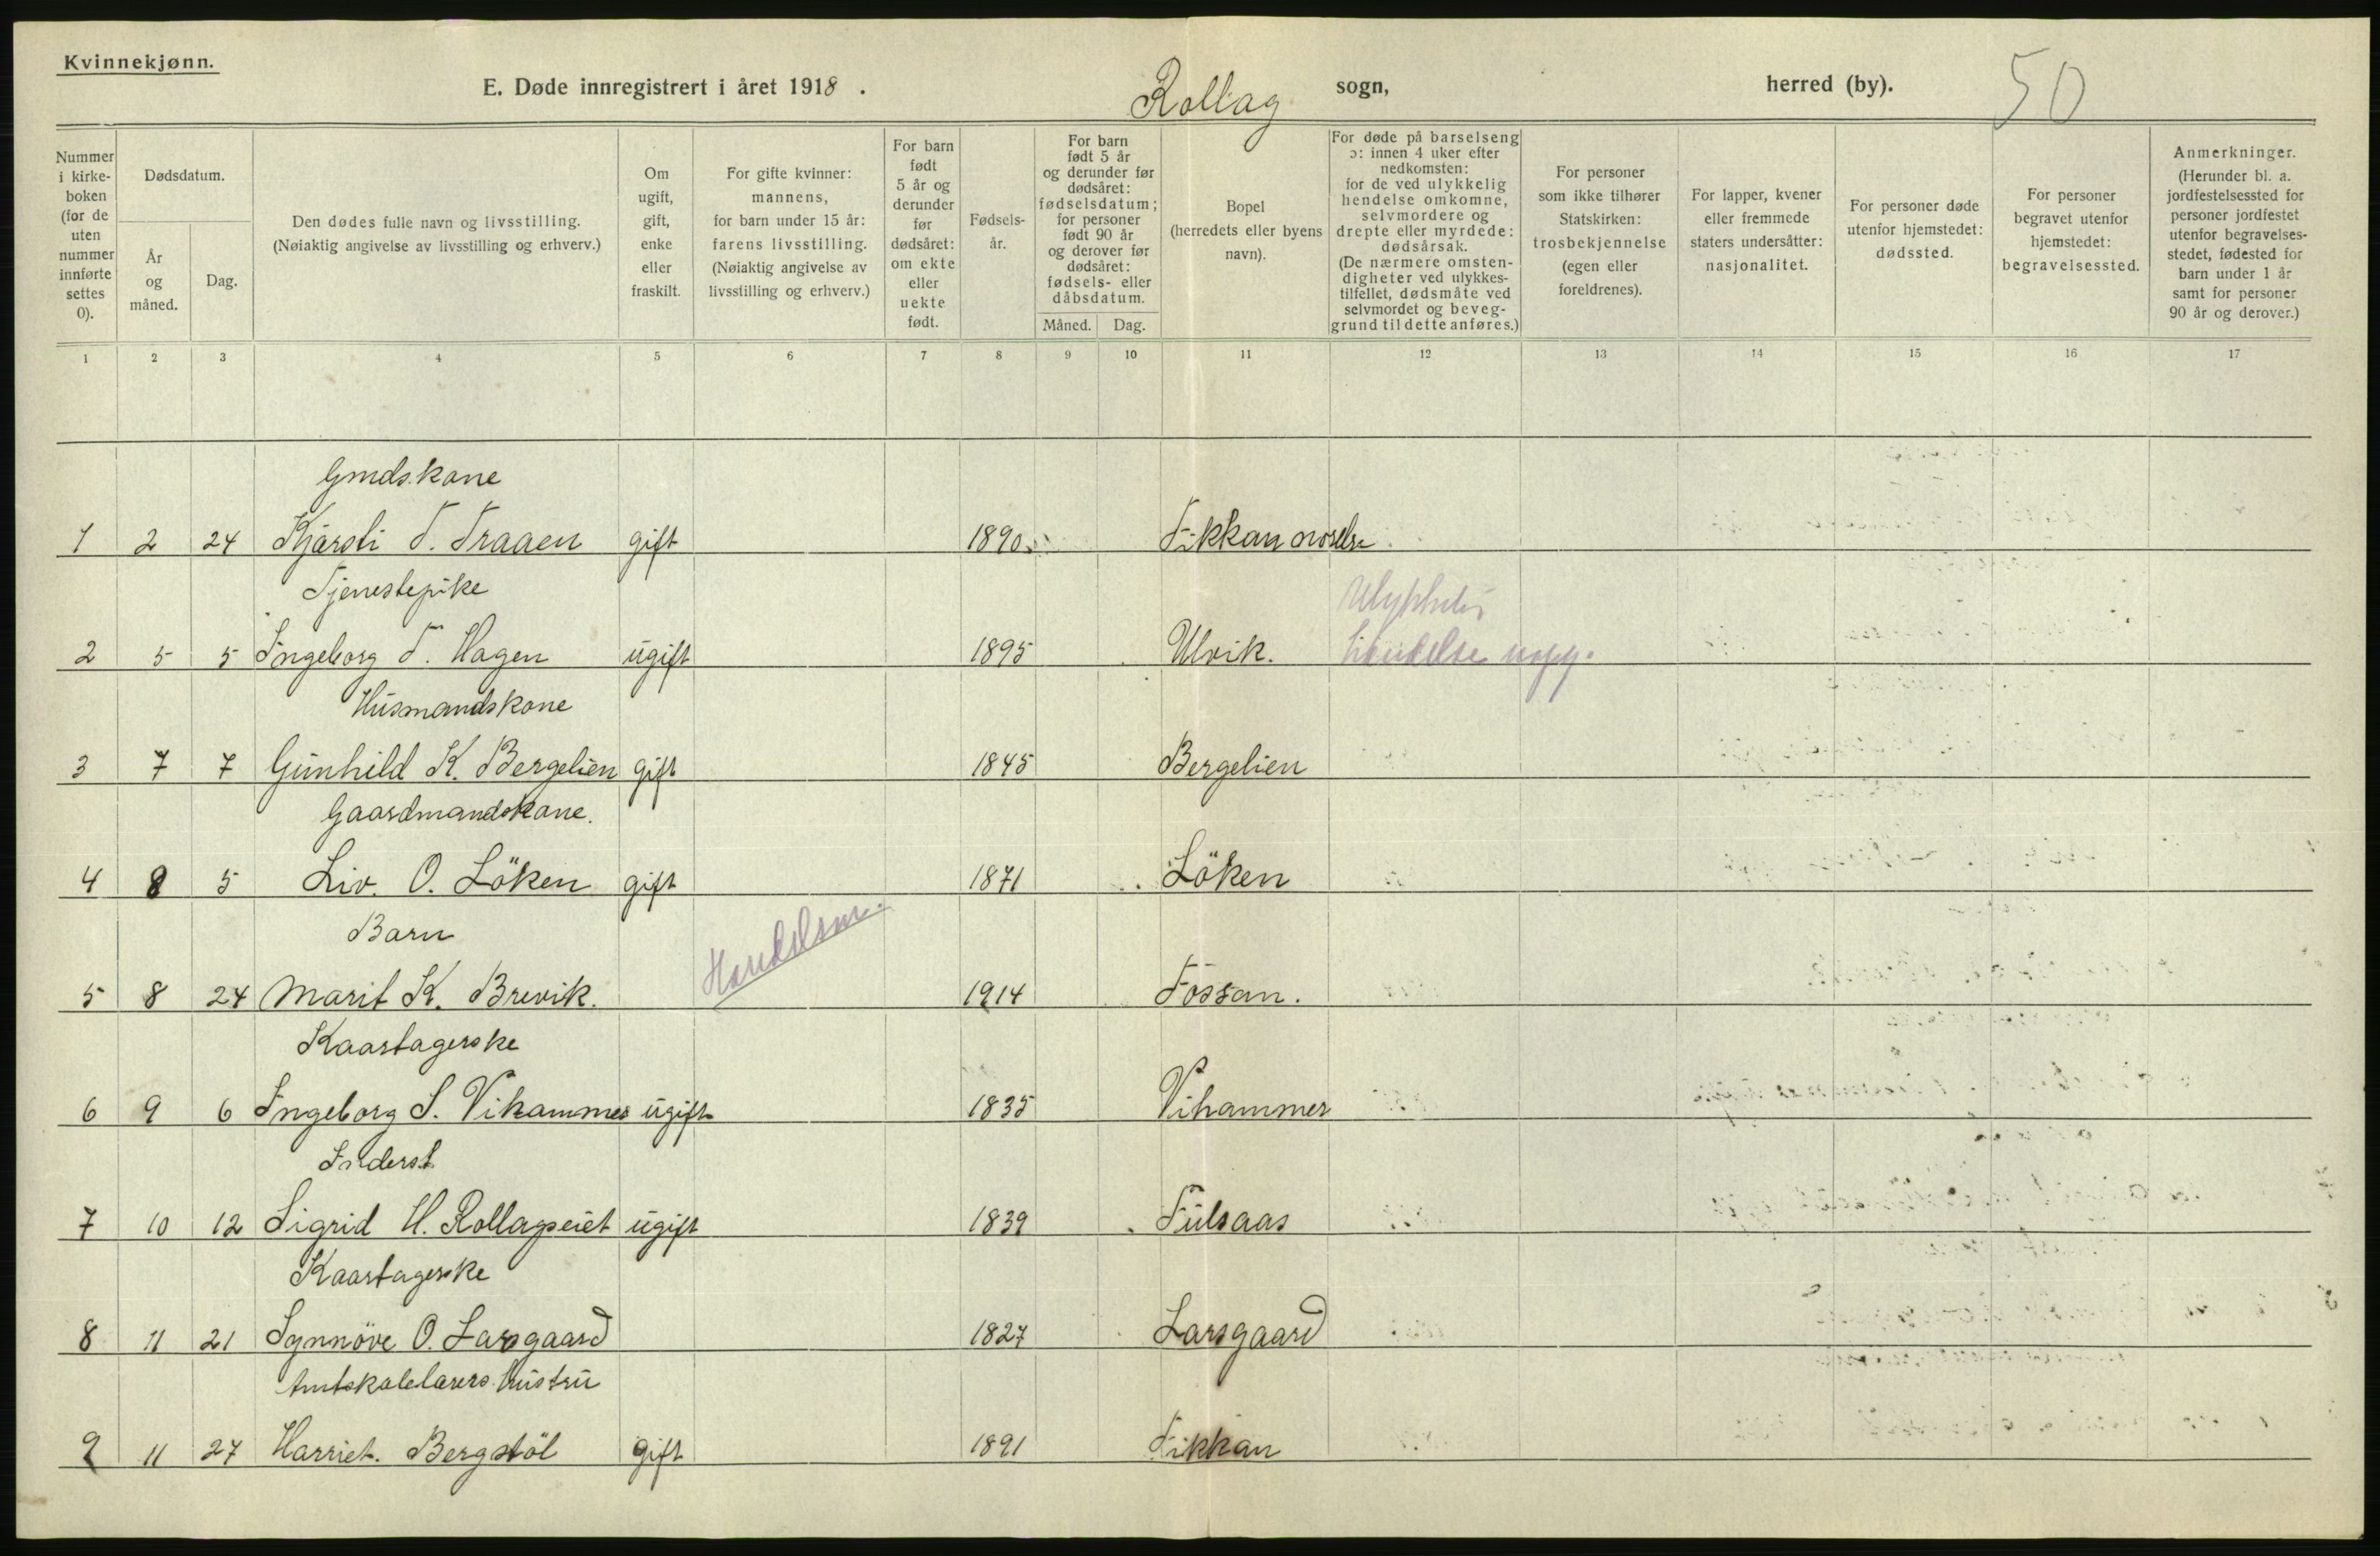 Kvinnekjønn.
E. Døde innregistrert i året 1918. Rollag sogn, herred (by). 50
Nummer i kirkeboken (for de uten nummer innførte settes 0).
Dødsdatum.
År og måned.
Dag.
Den dødes fulle navn og livsstilling.
(Nøiaktig angivelse av livsstilling og erhverv.)
Om ugift, gift, enke eller fraskilt.
For gifte kvinner: mannens, for barn under 15 år: farens livsstilling.
(Nøiaktig angivelse av livsstilling og erhverv.)
For barn født 5 år og derunder før dødsåret: om ekte eller uekte født.
Fødselsår.
For barn født 5 år og derunder før dødsåret: fødselsdatum; for personer født 90 år og derover før dødsåret: fødsels- eller dåbsdatum.
Måned. Dag.
Bopel (herredets eller byens navn).
For døde på barselseng ɔ: innen 4 uker efter nedkomsten: for de ved ulykkelig hendelse omkomne, selvmordere og drepte eller myrdede: dødsårsak.
(De nærmere omstendigheter ved ulykkestilfellet, dødsmåte ved selvmordet og beveggrund til dette anføres.)
For personer som ikke tilhører Statskirken: trosbekjennelse (egen eller foreldrenes).
For lapper, kvener eller fremmede staters undersåtter: nasjonalitet.
For personer døde utenfor hjemstedet: dødssted.
For personer begravet utenfor hjemstedet: begravelsessted.
Anmerkninger.
(Herunder bl. a. jordfestelsessted for personer jordfestet utenfor begravelsesstedet, fødested for barn under 1 år samt for personer 90 år og derover.)
1 2 3 4 5 6 7 8 9 10 11 12 13 14 15 16 17
Gmds.kone
1 2 24 Kjærsti T. Traaen gift 1890. Fikkan
Tjenestepike
2 5 5 Ingeborg T. Hagen ugift 1895 Ulvik. hendelse
Husmandskone
3 7 7 Gunhild K. Bergelien gift 1845 Bergelien
Gaardmandskone.
4 8 5 Liv. O. Löken gift 1871 Löken
Barn
5 8 24 Marit K. Brevik. Handelsm. 1914 Fossan.
Kaartagerske
6 9 6 Ingeborg S. Vikammer ugift 1835 Vihammer
Inderst
7 10 12 Sigrid H. Rollagseiet ugift 1839 Fulsaas
Kaartagerske
8 11 21 Synnöve O. Larsgaard 1827 Larsgaard
Amtskolelærers hustru
9 11 27 Harriet. Bergstöl gift 1891 Fikkan